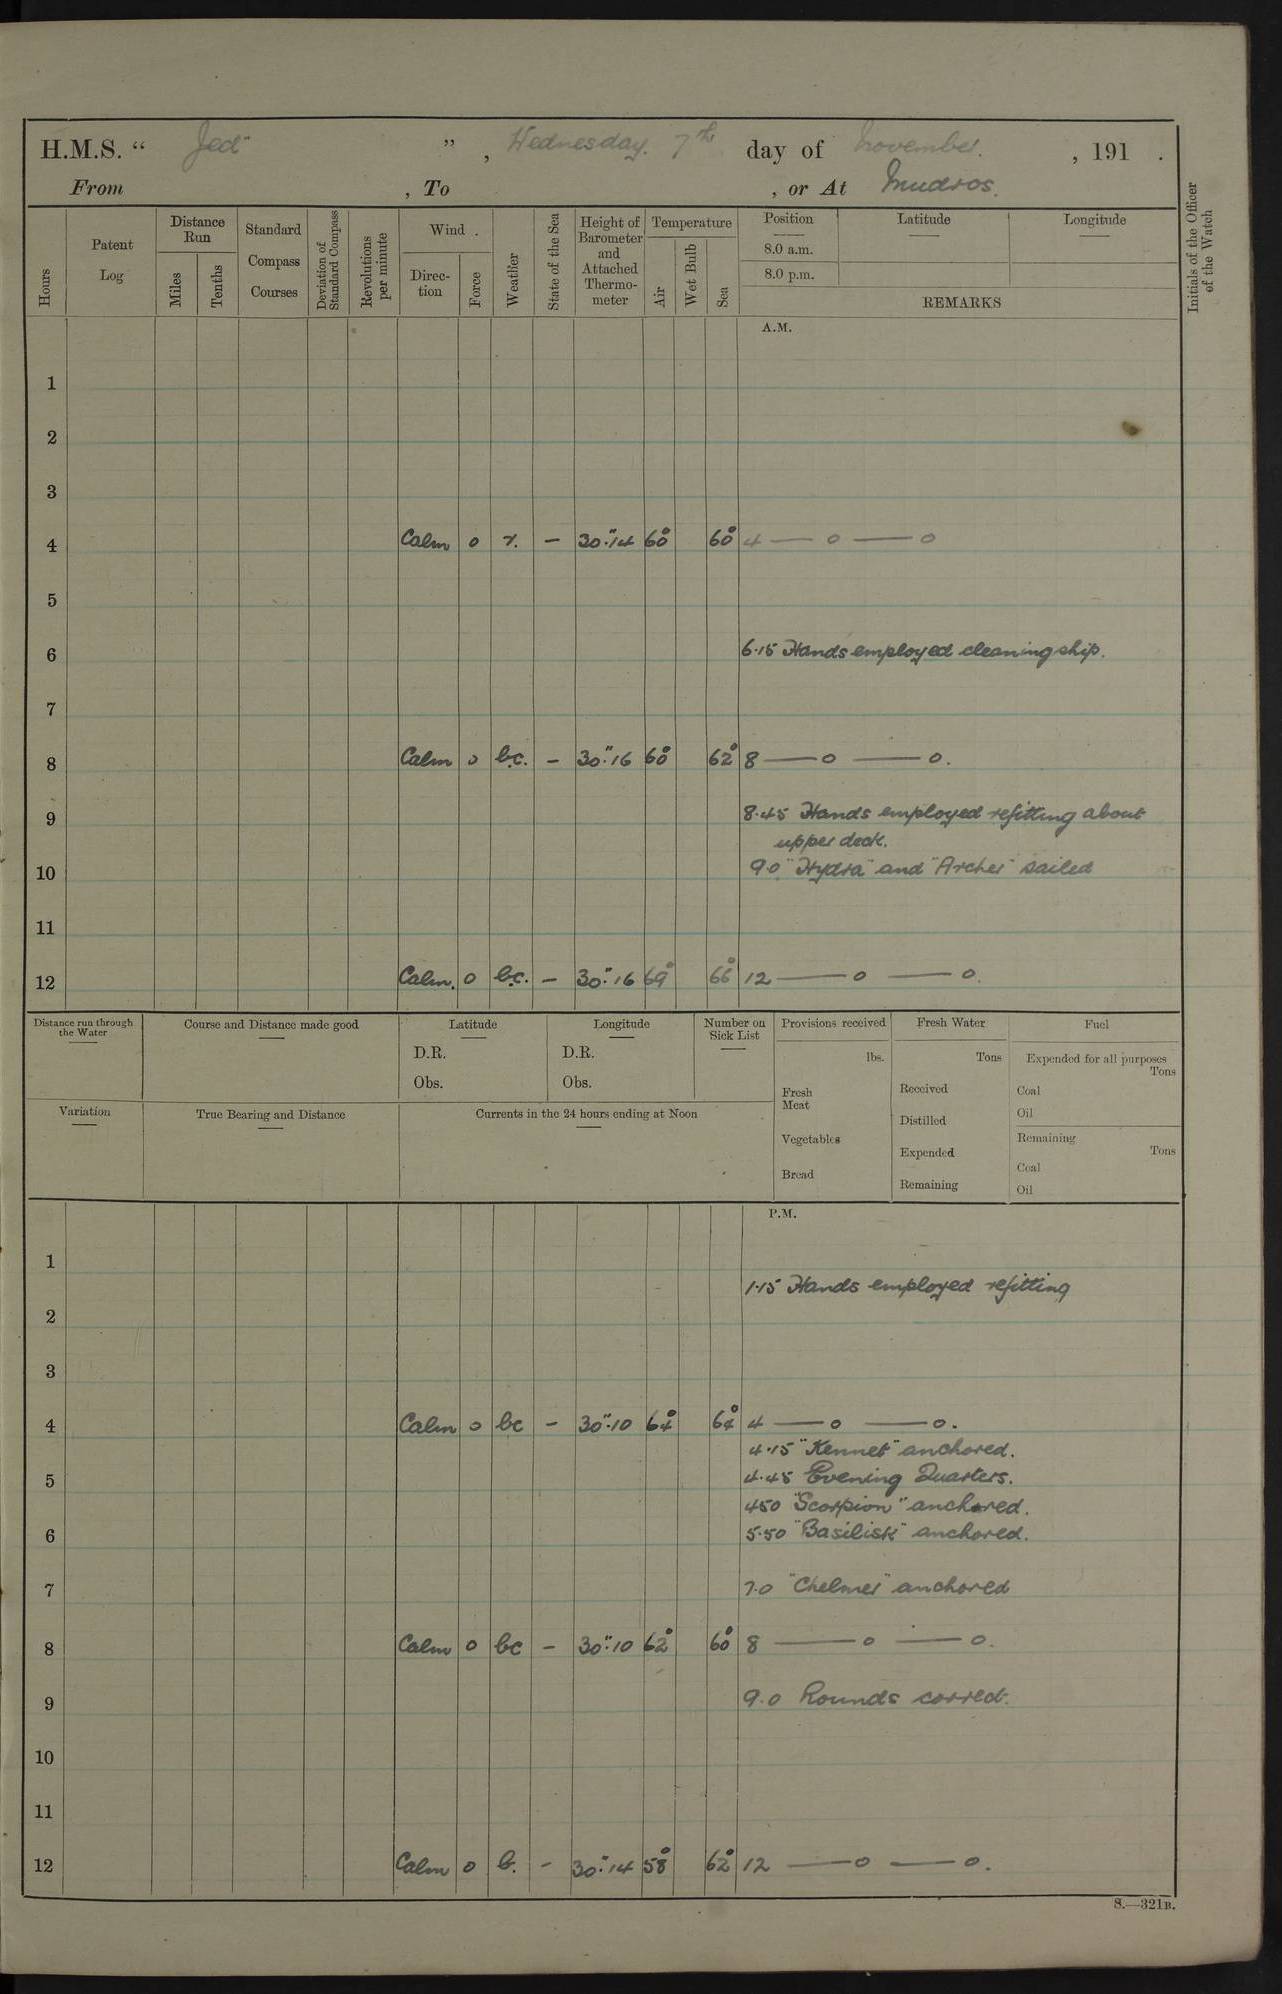 H.M.S. “ Jed” ” , Wednesday. 7th day of November. , 191 .
From , To , or At Mudros.
Hours
Patent Log
Distance Run
Miles
Tenths
Standard Compass Courses
Deviation of Standard Compass
Revolutions per minute
Wind .
Direc- tion
Force
Weather
State of the Sea
Height of Barometer and Attached Thermo- meter
Temperature
Air
Wet Bulb
Sea
Position Latitude Longitude
8.0 a.m.
8.0 p.m.
REMARKS
Initials of the Officer of the Watch
A.M.
1
2
3
4 Calm 0 — 30".14 60° 60° 4 — o — o
5
6 6.15 Hands employed cleaning ship.
7
8 Calm 0 b.c. — 30".16 60° 62° 8 — o — o.
9 8.45 Hands employed refitting about
upper deck.
10 9.0 "Hydra" and "Archer" sailed
11
12 Calm. 0 b.c. — 30".16 69° 66° 12 — o — o.
Distance run through the Water
Course and Distance made good
Latitude
D.R.
Obs.
Longitude
D.R.
Obs.
Number on Sick List
Provisions received
lbs.
Fresh Meat
Vegetables
Bread
Fresh Water
Tons
Received
Distilled
Expended
Remaining
Fuel
Expended for all purposes
Tons
Coal
Oil
Remaining
Tons
Coal
Oil
Variation
True Bearing and Distance
Currents in the 24 hours ending at Noon
P.M.
1
1.15 Hands employed refitting
2
3
4 Calm 0 bc — 30".10 64° 64° 4 — o — o.
4.15 "Kennet" anchored.
5 4.45 Evening Quarters.
4 50 "Scorpion" anchored.
6 5.50 "Basilisk" anchored.
7 7.0 "Chelmer" anchored
8 Calm 0 bc — 30".10 62° 60° 8 — o — o.
9 9.0 Rounds correct.
10
11
12 Calm 0 b. — 30".14 58° 62° 12 — o — o.
S.—321B.